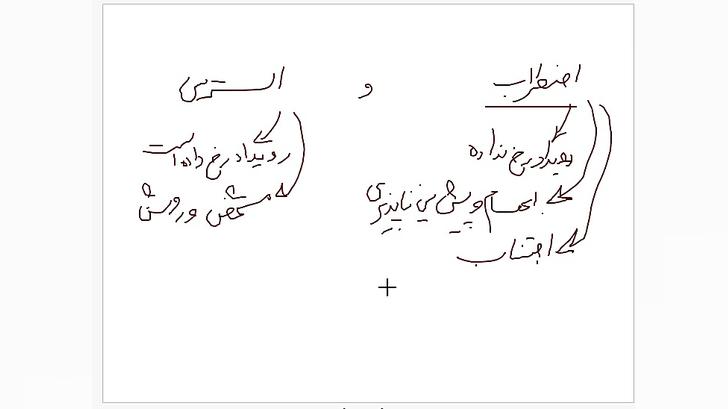 اضطراب و استرس
رویداد رخ نداده
رویداد رخ داده است
ابهام و پیش بینی ناپذیری
مشخص و روشن
اجتناب